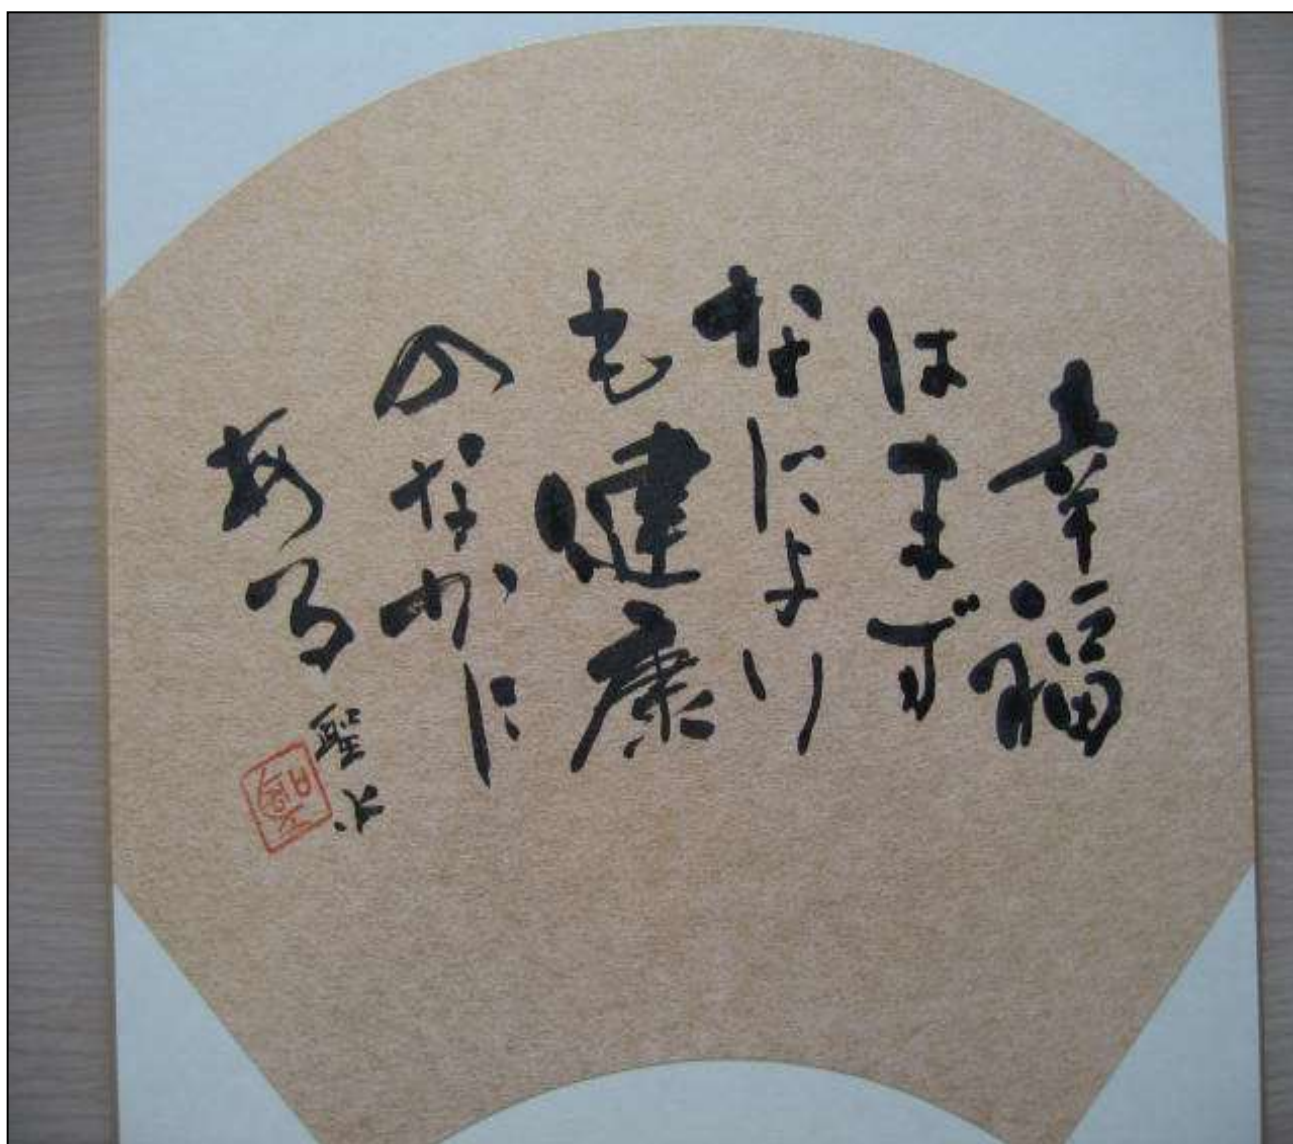 幸福
はまず
なにより
も健康
のなかに
ある
聖水